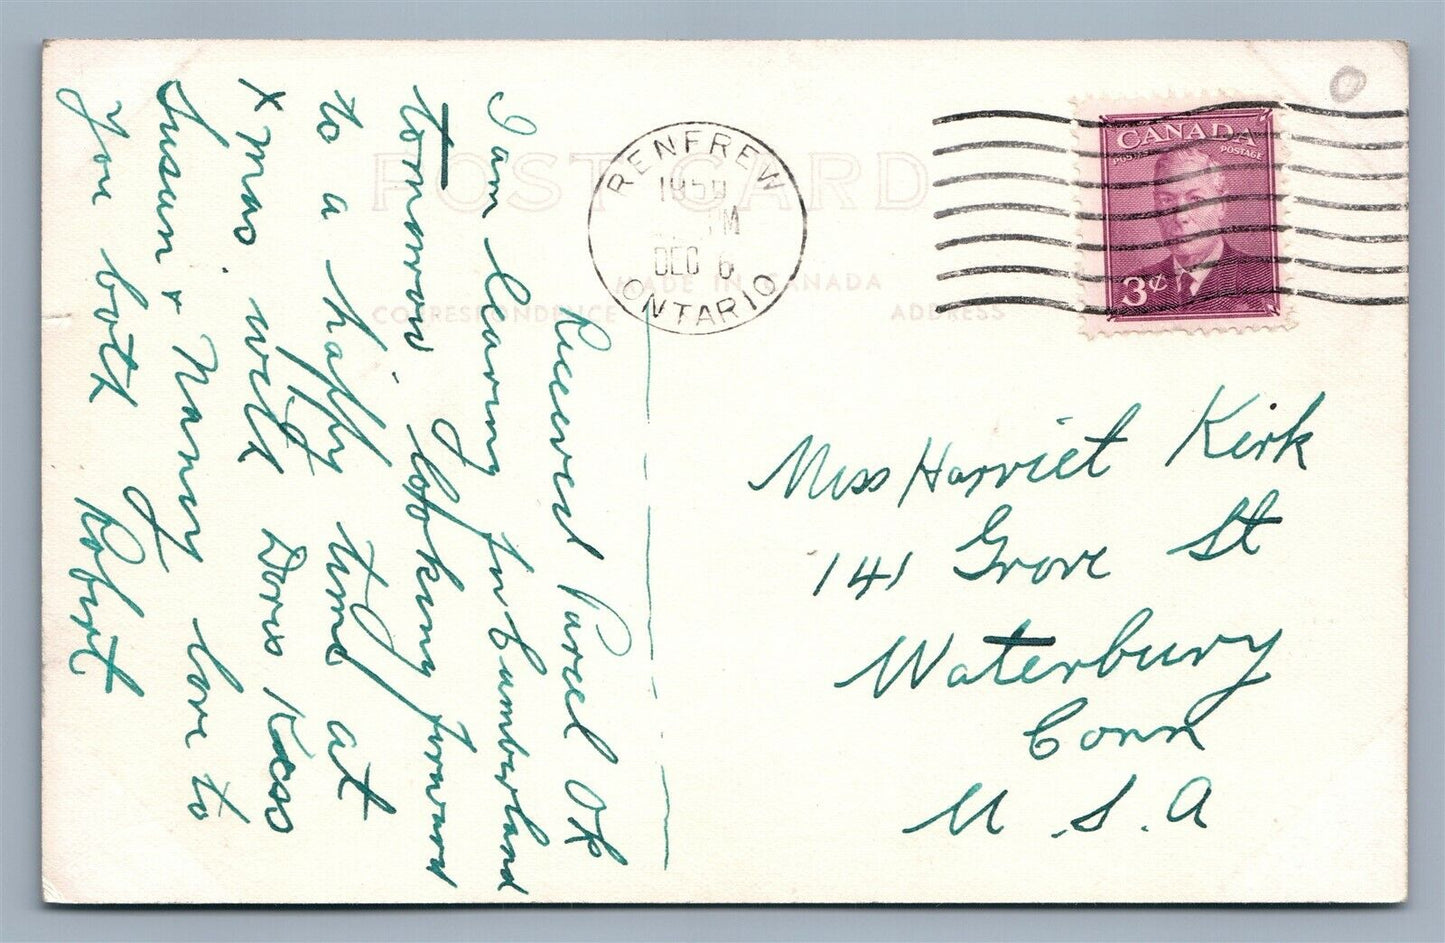 POST CARD
MADE IN CANADA
CORRESPONDENCE
ADDRESS
RENFREW
PM
DEC 6
ONTARIO
CANADA
POSTES POSTAGE
3¢
Received Parcel OK
I am leaving for Cumberland
tomorrow. looking forward
to a happy time at
Xmas with Doris Kiss
Susan + Nancy love to
You both Robert
Miss Harriet Kirk
141 Grove St
Waterbury
Conn
U.S.A